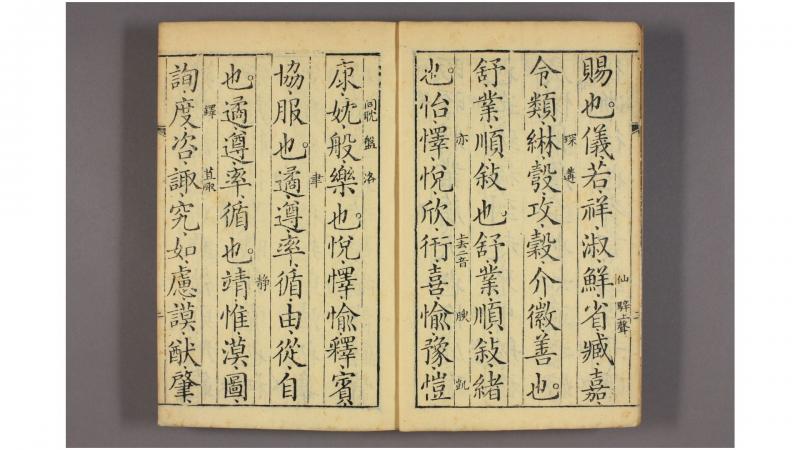 仙 騂上聲
賜也。儀若祥淑鮮省臧嘉
琛 遘
令類綝彀攻穀介徽善也。
舒業順敘也。舒業順敘緒
亦 上去二音 腴 凱
也。怡懌悅欣衎喜愉豫愷
同耽 盤 洛
康妉般樂也。悅懌愉釋賓
聿
協服也。遹遵率循由從自
靜
也。遹遵率循也。靖惟漠圖
鐸
詢度咨諏究如慮謨猷肇
二